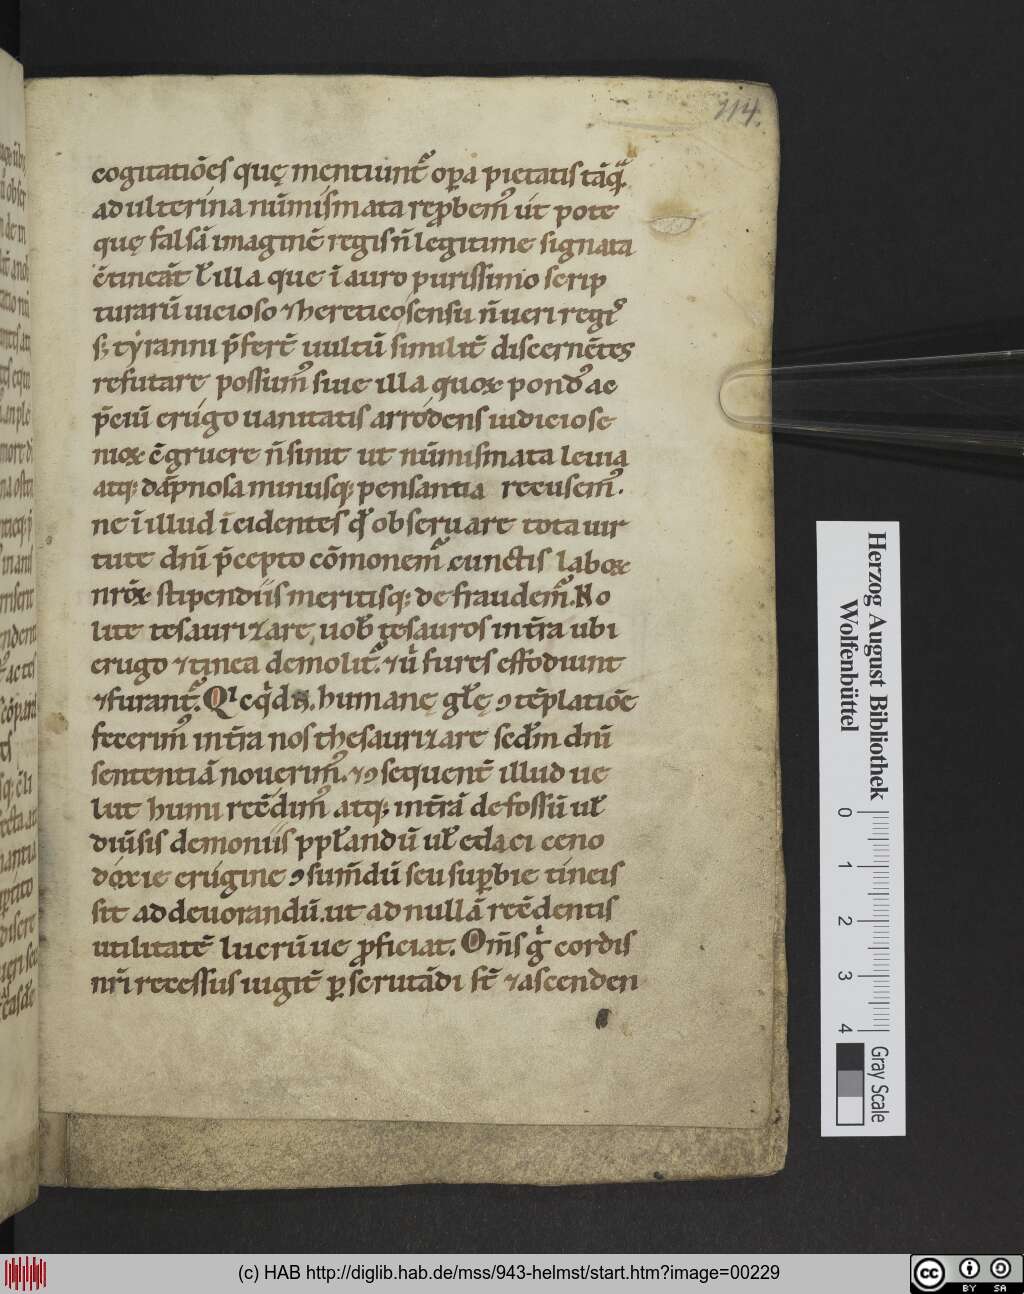 114.
cogitatiōes quę mentiunt᷑ opa pietatis tāq̄
adulterina nūmismata repbem᷒ ut pote
quę falsā imaginē regis n̄ legitime signata
c̄tineāt ł illa que ī auro purissimo scrip
turarū uicioso ⁊ heretico sensu n̄ ueri regis᷒
s; tyranni p̄fert̄ uultū similit̄ discernētes
refutare possum᷒ siue illa quoꝝ pond᷒ ac
p̄ciū erugo uanitatis arrodens iudicio se
nioꝝ c̄gruere n̄ sinit ut nūmismata leuia
atq; dāpnosa minusq; pensantia recusem᷒.
ne ī illud īcidentes qđ obseruare tota uir
tute dn̄i p̄cepto cōmonem᷑ cunctis laboꝝ
nr̄oꝝ stipendiis meritisq; defraudem᷑. No
lite tesaurizare uob̄ tesauros in tr̄a ubi
erugo ⁊ tinea demolit᷑. ⁊ ū fures effodiunt
⁊ furant᷑. Qicqd humanę głę ꝯtēplatiōe
fecerim᷒ in tr̄a nos thesaurizare sedm̄ dn̄i
sententiā nouerim᷒. ⁊ ꝯsequent̄ illud ue
lut humi recōdim᷒ atq; in tr̄ā defossū uł
diūsis demoniis ppłandū uł edaci ceno
doxie erugine ꝯsum̄dū seu supbie tineis
sit ad deuorandū. ut ad nullā recōdentis
utilitatē lucrūue pficiat. Om̄s g̊ cordis
nr̄i recessus iugit̄ pscrutādi st̄ ⁊ ascenden
Herzog August Bibliothek
Wolfenbüttel
0 1 2 3 4
Gray Scale
(c) HAB http://diglib.hab.de/mss/943-helmst/start.htm?image=00229
cc BY SA